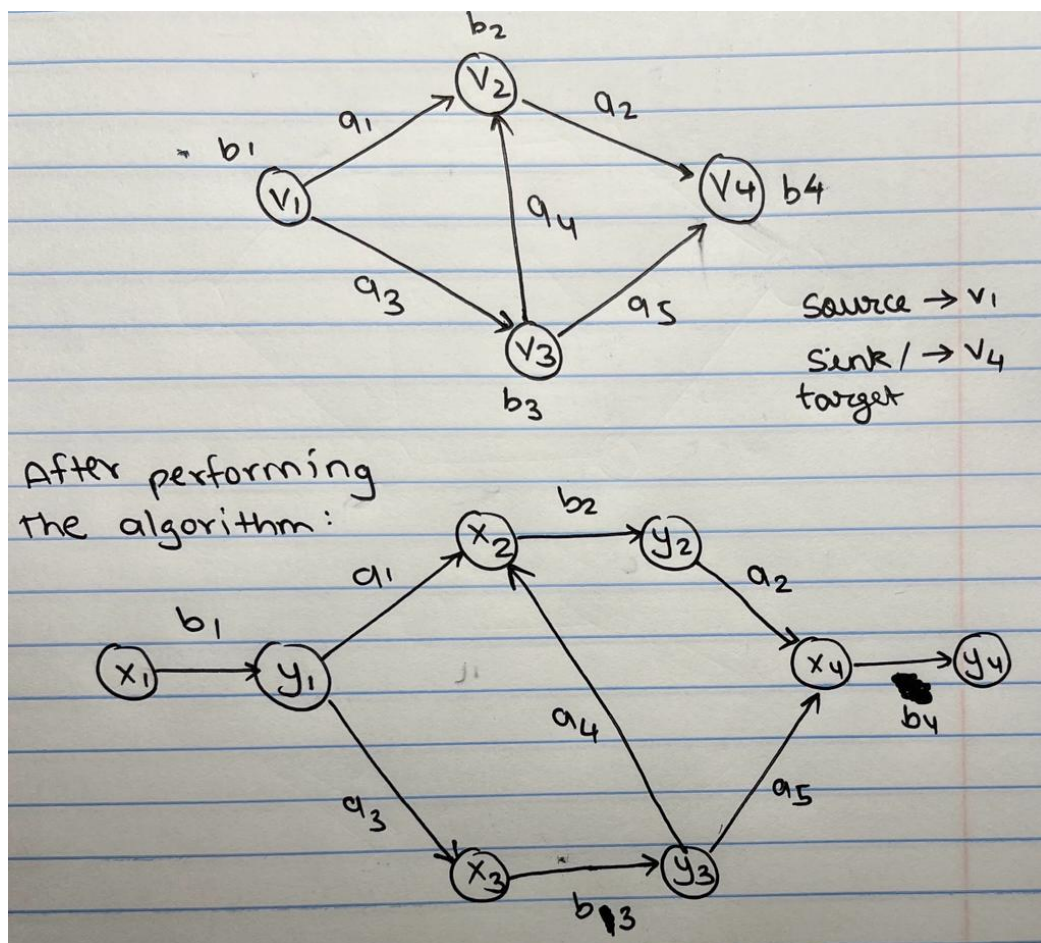 b2
V2
a1
a2
b1
V1
V4
b4
a4
a3
a5
V3
b3
Source → V1
Sink/ → V4
target
After performing
the algorithm:
x2
b2
y2
a1
a2
b1
x1
y1
x4
y4
b4
a4
a3
a5
x3
y3
b3